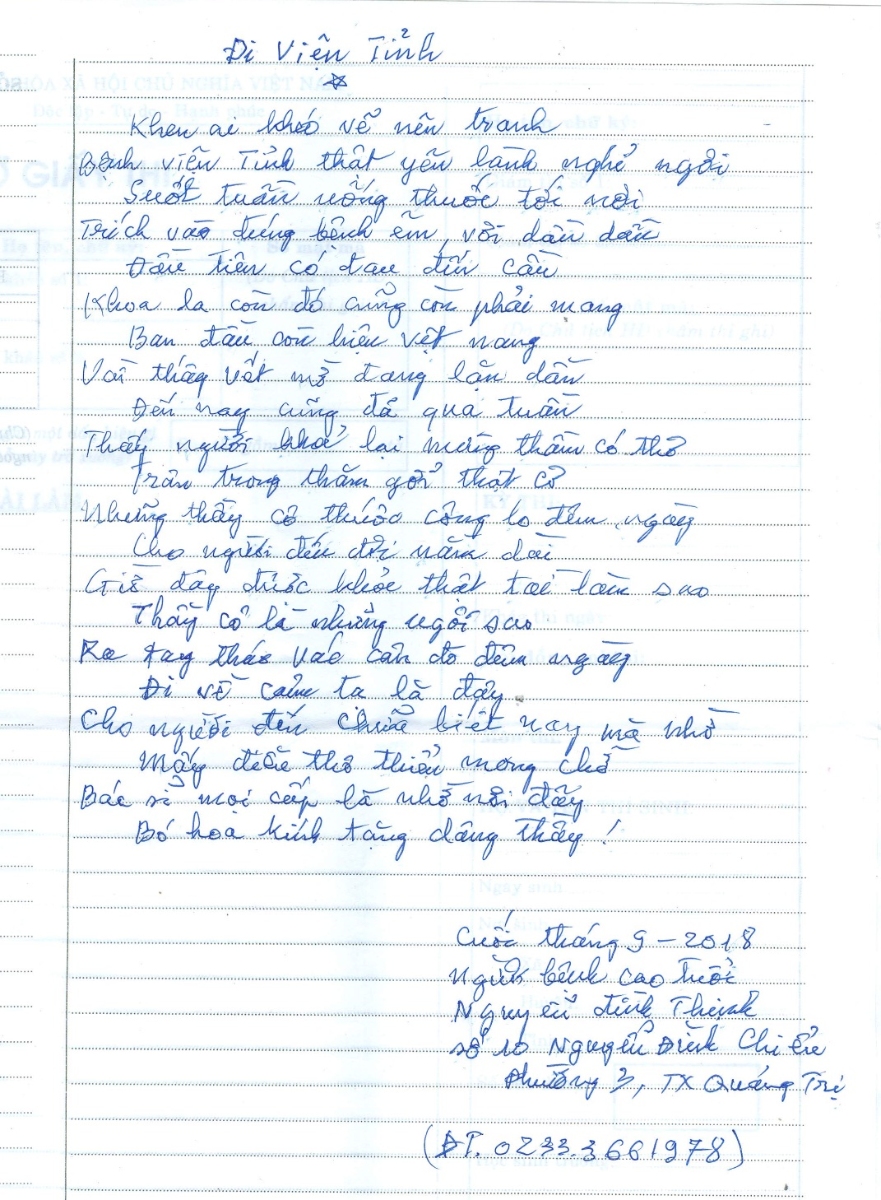 Đi Viện Tỉnh
Khen ai khéo vẽ nên tranh
Bệnh viện Tỉnh thật yên lành nghỉ ngơi
Suốt tuần uống thuốc tới nơi
Trích vào đúng bệnh êm, vơi dần dần
Đầu tiên có đau đến cần
Khoa la con đó cũng còn phải mang
Ban đầu còn hiện vệt nang
Vài tháng vết mờ đang lặn dần
Đến nay cũng đã qua tuần
Thấy người khoẻ lại mừng thầm có thơ
Trân trọng thăm gởi thật cô
Những thầy cô thuốc công lo đêm ngày
Cho người đến đời nằm dài
Giờ đây được khỏe thật tài làm sao
Thầy cô là những ngôi sao
Ra tay tháo vác căn đo đêm ngày
Đi về cảm ta là đây
Cho người đến chữa biết nay mà nhờ
Mấy điều thô thiển mong chờ
Bác sĩ mọi cấp là nhờ nơi đây
Bó hoa kính tặng dâng thầy !
Cuối tháng 9 - 2018
Người bệnh cao tuổi
Nguyễn đình Thịnh
số 10 Nguyễn Đình Chiểu
Phường 3, TX Quảng Trị
(ĐT. 0233.3661978)